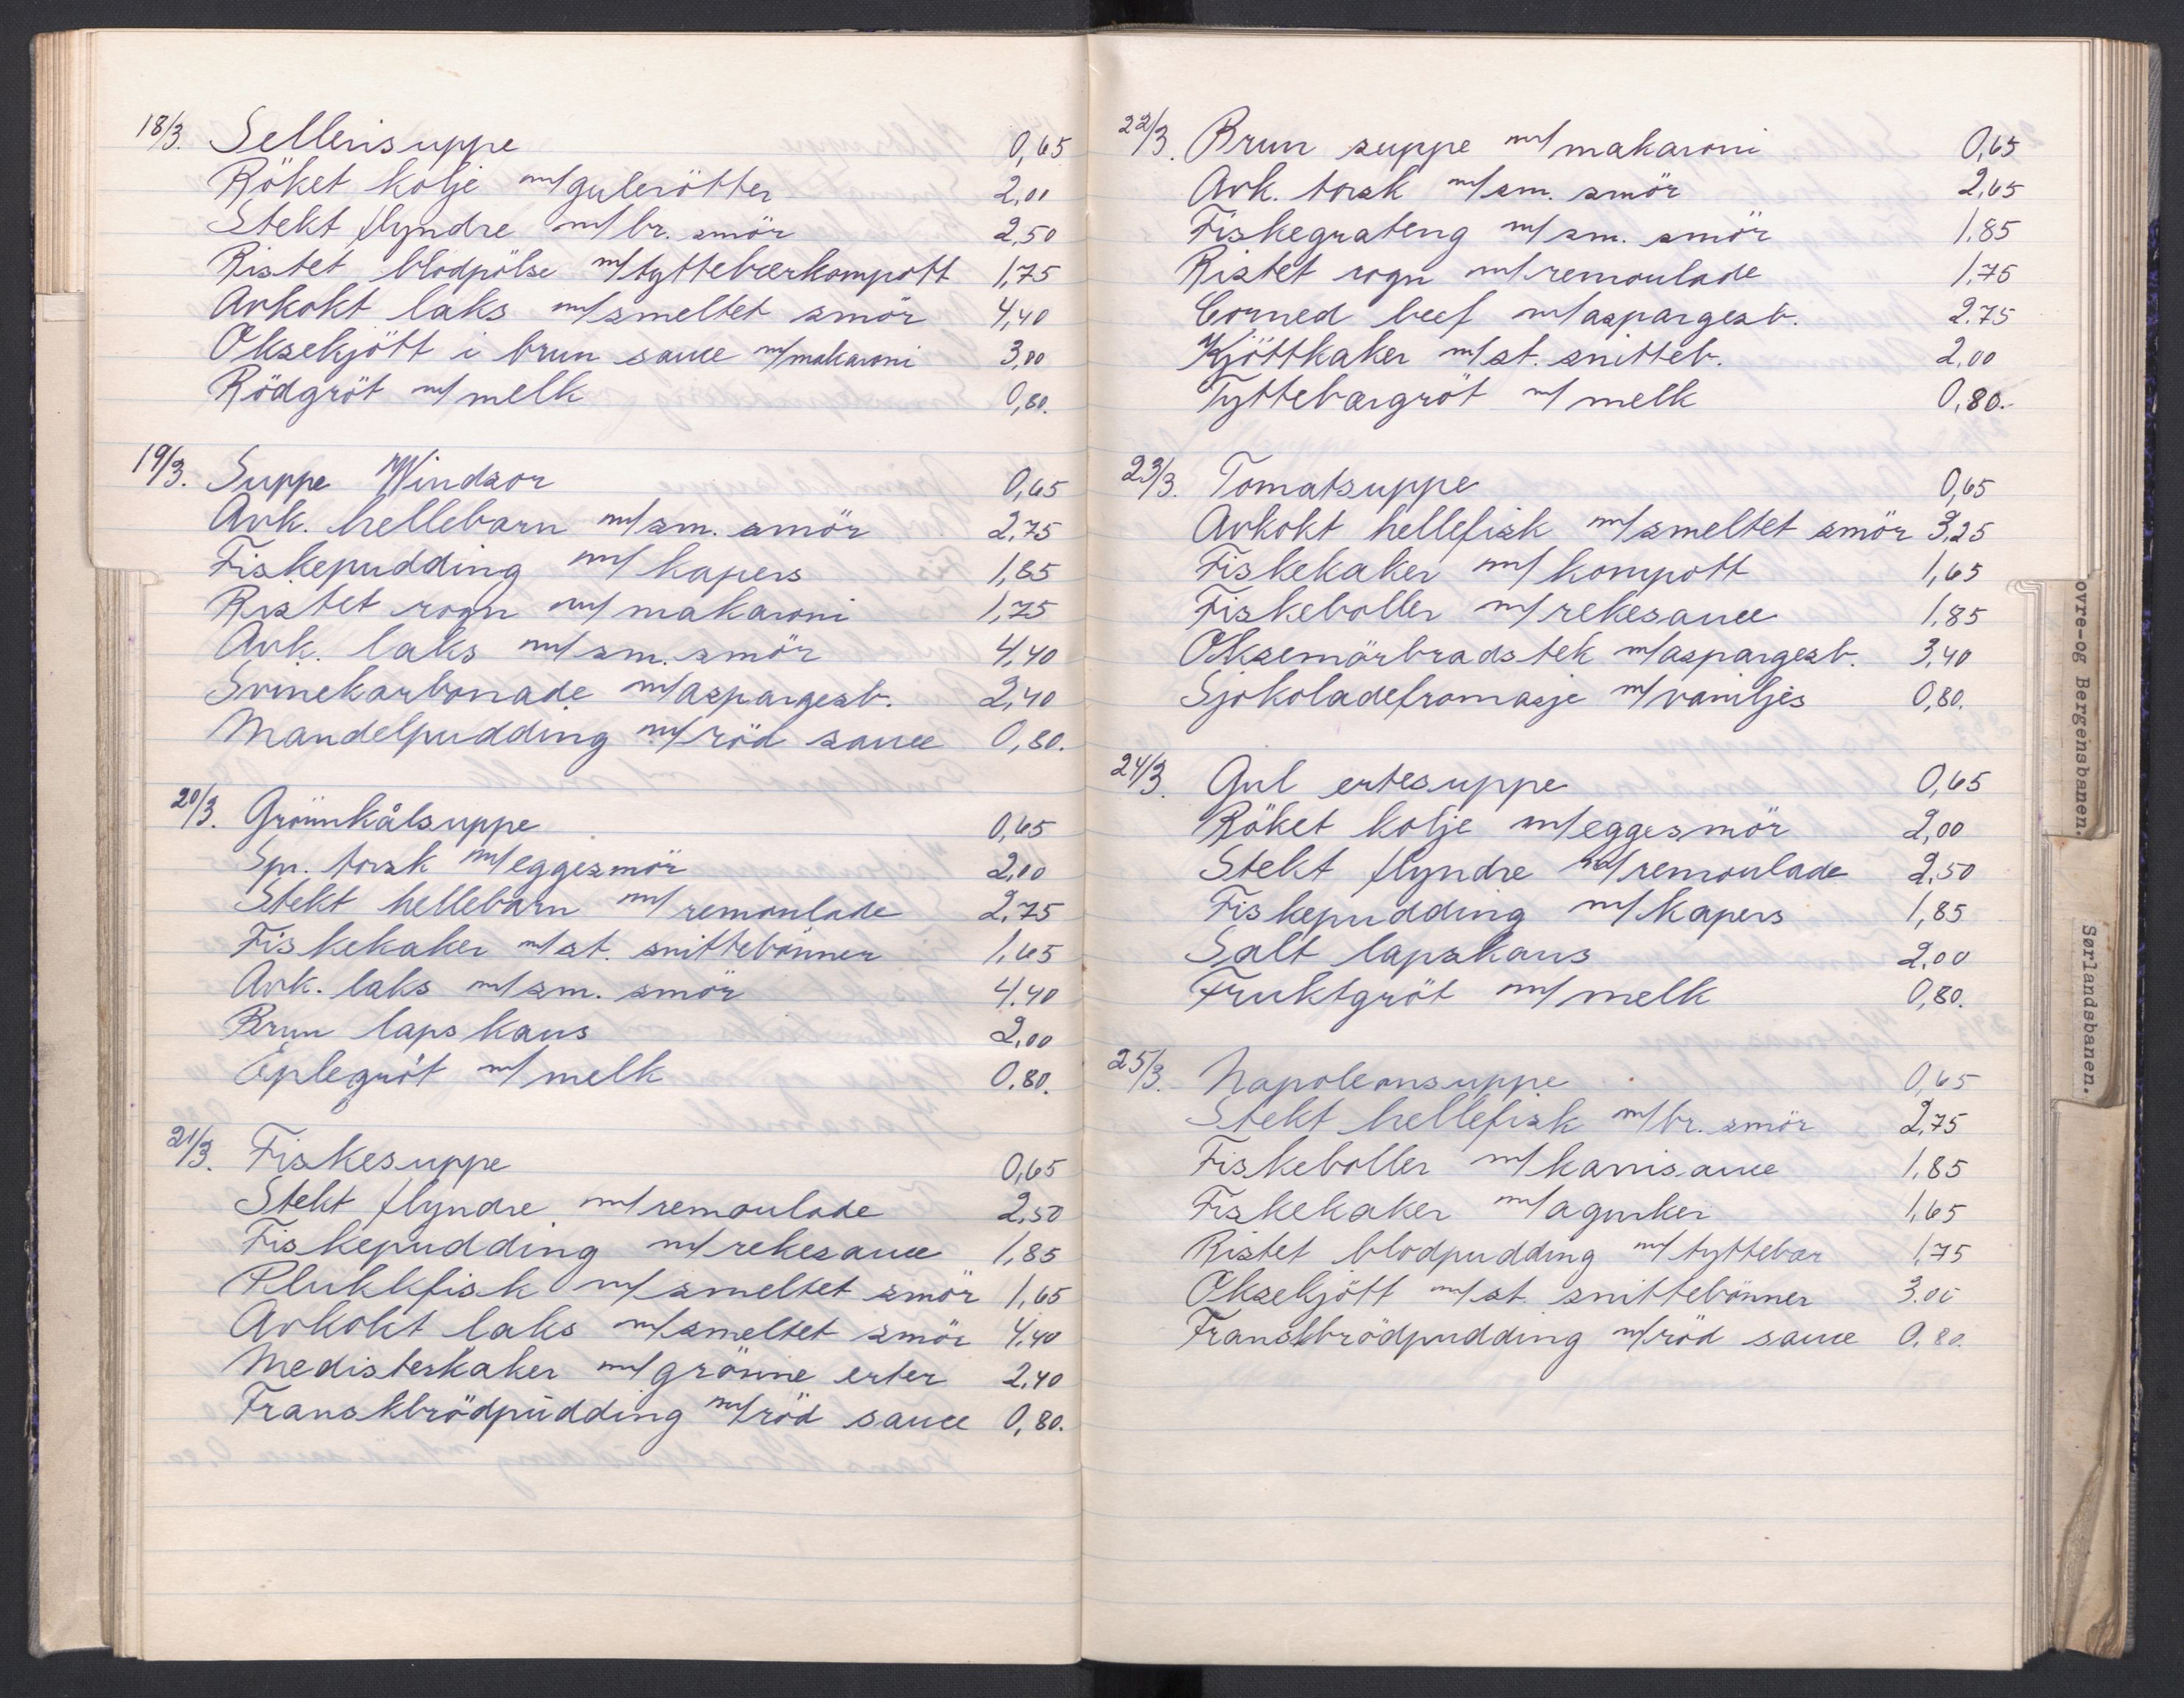 18/3. Sellerisuppe 0,65
Röket kolje m/gulerötter 2,00
Stekt flyndre m/br. smör 2,50
Ristet blodpölse m/tyttebærkompott 1,75
Avkokt laks m/smeltet smör 4,40
Oksekjött i brun sauce m/makaroni 3,00
Rödgröt m/melk 0,80.
19/3. Suppe Windsor 0,65
Avk. hellebarn m/sm. smör 2,75
Fiskepudding m/kapers 1,85
Ristet rogn m/makaroni 1,75
Avk. laks m/sm. smör 4,40
Svinekarbonade m/aspargesb. 2,40
Mandelpudding m/röd sauce 0,80.
20/3. Grönnkålsuppe 0,65
Spr. torsk m/eggesmör 2,00
Stekt hellebarn m/remoulade 2,75
Fiskekaker m/st. snittebönner 1,65
Avk. laks m/sm. smör 4.40
Brun lapskaus 2,00
Eplegröt m/melk 0.80.
21/3. Fiskesuppe 0,65
Stekt flyndre m/remoulade 2,50
Fiskepudding m/rekesauce 1,85
Plukkfisk m/smeltet smör 1,65
Avkokt laks m/smeltet smör 4,40
Medisterkaker m/grönne erter 2,40
Franskbrödpudding m/röd sauce 0,80.
22/3. Brun suppe m/makaroni 0,65
Avk. torsk m/sm. smör 2,65
Fiskegrateng m/sm. smör 1.85
Ristet rogn m/remoulade 1,75
Corned beef m/aspargesb. 2.75
Kjöttkaker m/st. snitteb. 2,00
Tyttebærgröt m/melk 0,80.-
23/3. Tomatsuppe 0,65
Avkokt hellefisk m/smeltet smör 3,25
Fiskekaker m/kompott 1,65
Fiskeboller m/rekesauce 1,85
Oksemörbradstek m/aspargesb. 3,40
Sjokoladefromasje m/vaniljes 0,80.
24/3. Gul ertesuppe 0,65
Röket kolje m/eggesmör 2,00
Stekt flyndre m/remoulade 2,50
Fiskepudding m/kapers 1,85
Salt lapskaus 2,00
Fruktgröt m/melk 0,80.
25/3. Napoleonsuppe 0,65
Stekt hellefisk m/br. smör 2,75
Fiskeboller m/karrisauce 1,85
Fiskekaker m/agurker 1,65
Ristet blodpudding m/tyttebær 1,75
Oksekjött m/st. snittebönner 3.00
Franskbrödpudding m/röd sauce 0.80.
ovre-og Bergensbanen.
Sørlandsbanen.